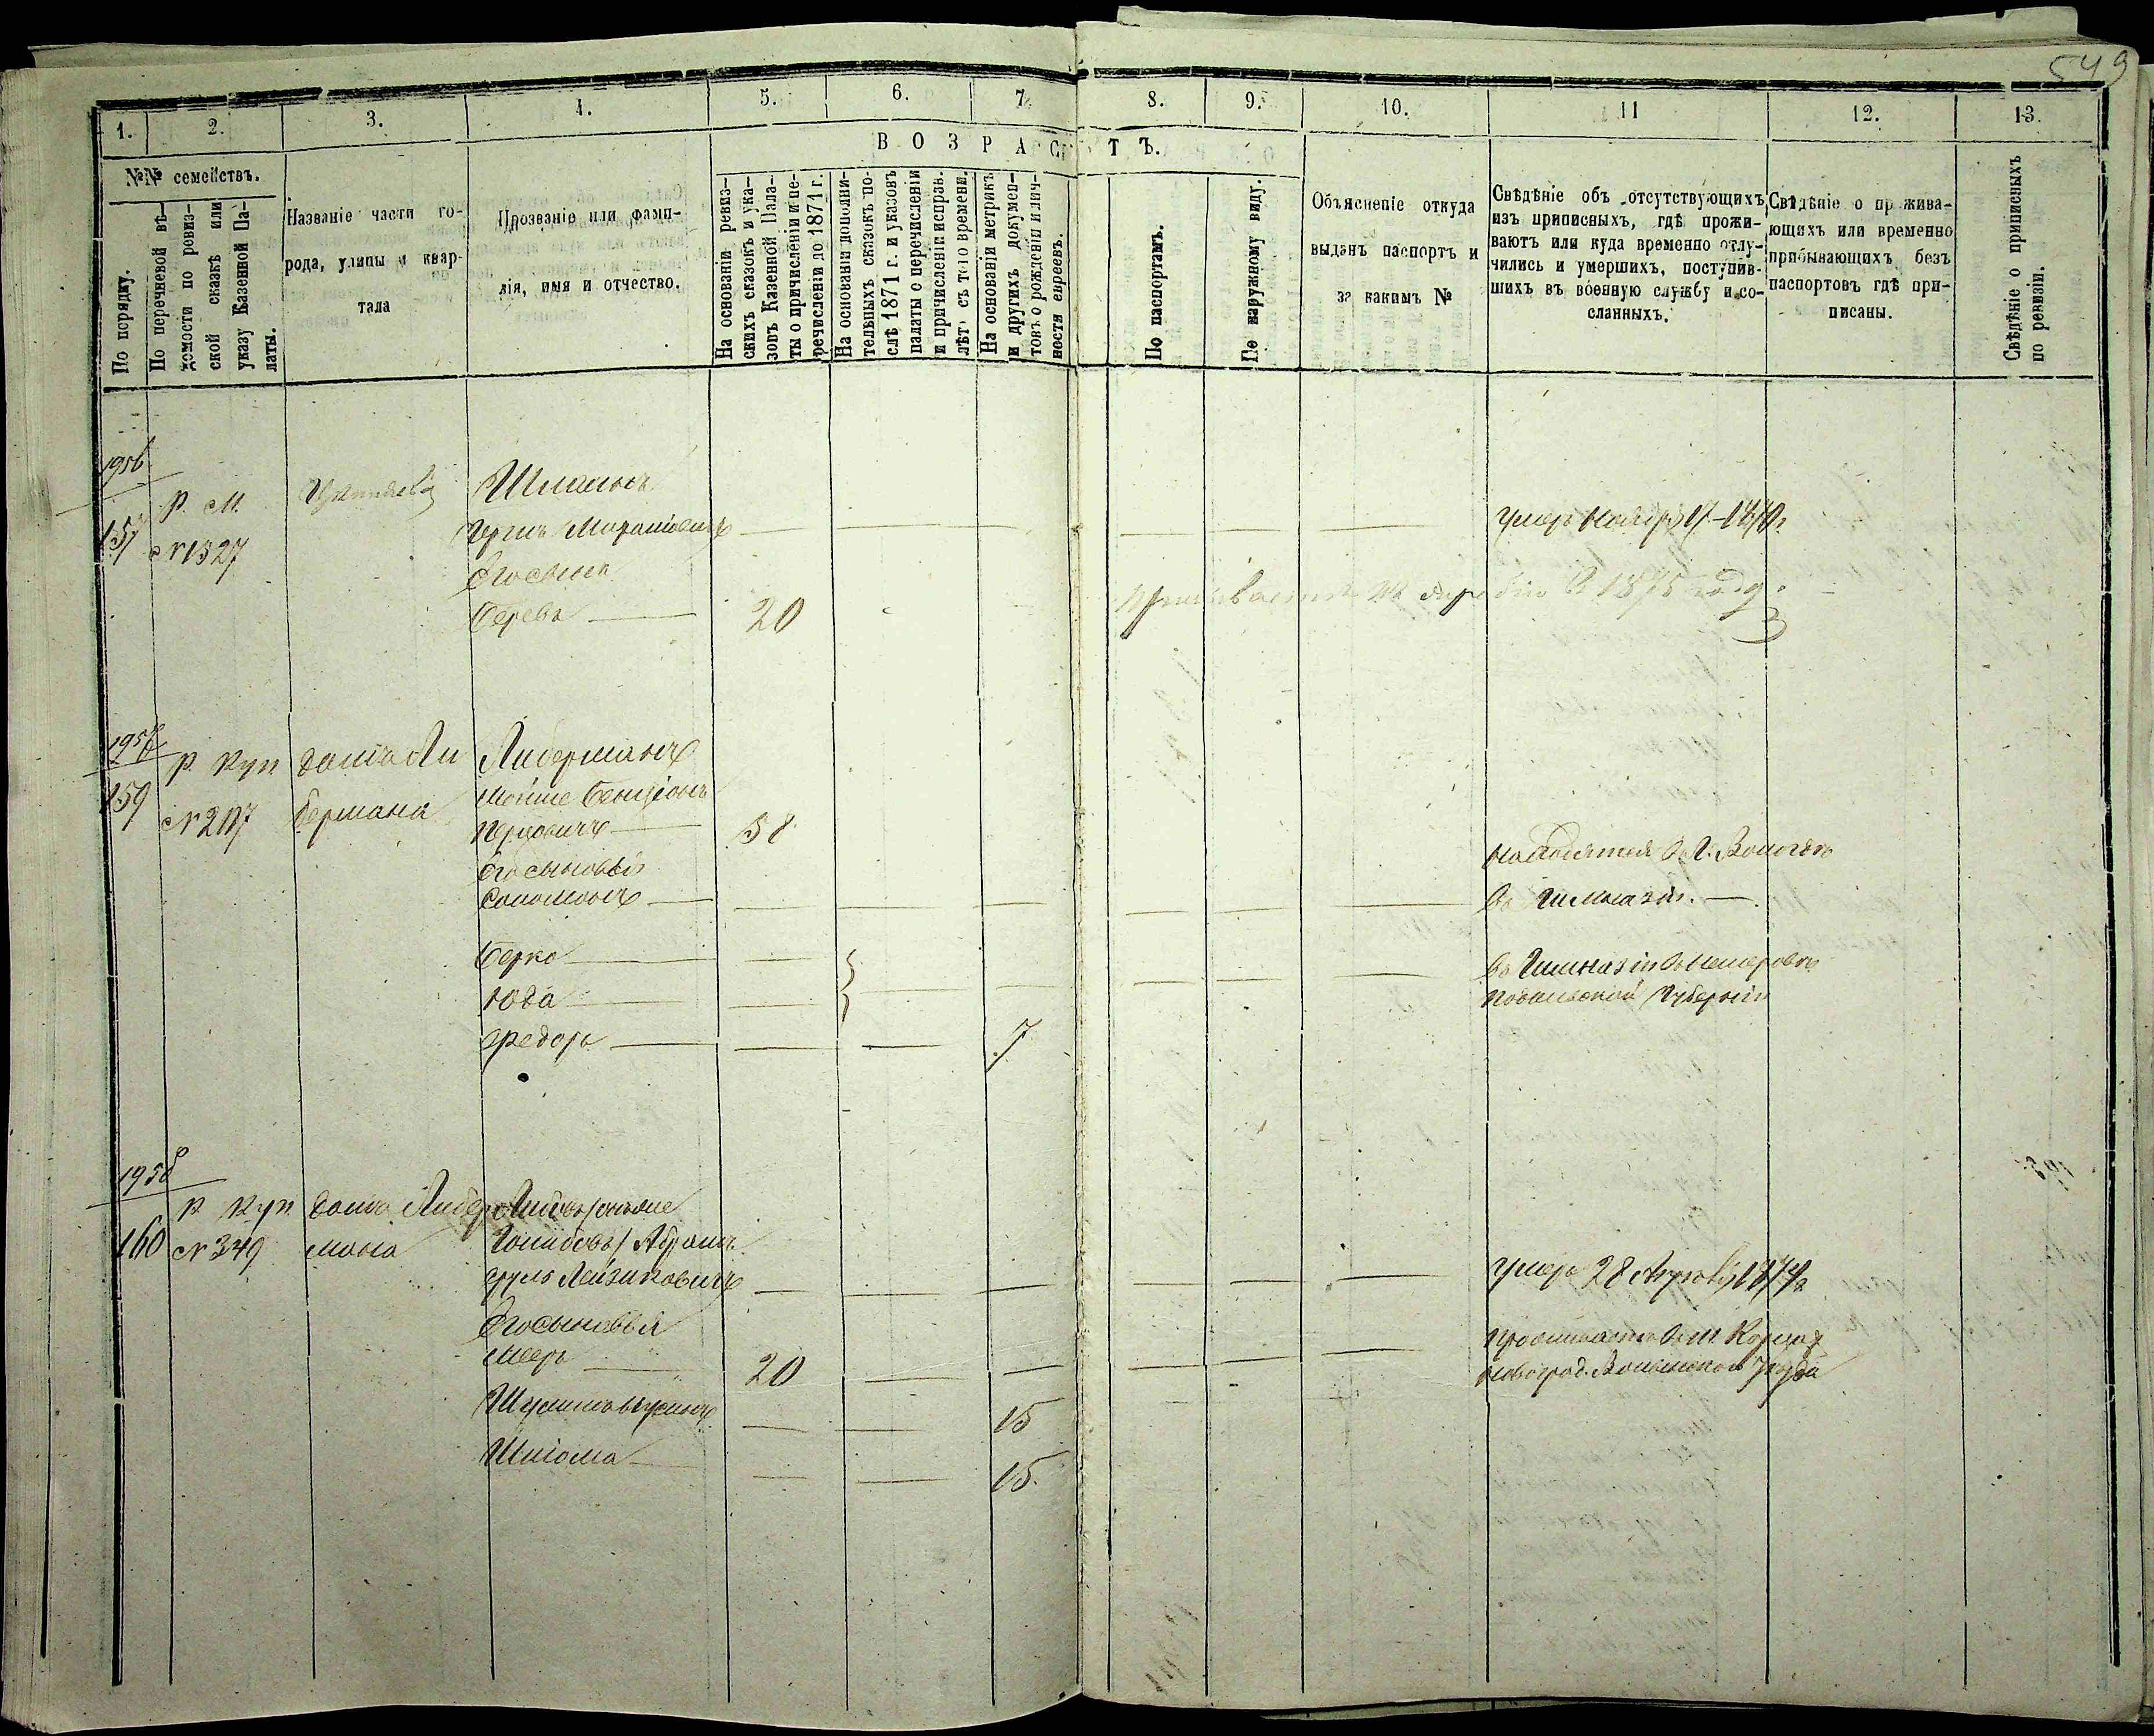 549
1. 2. 3. 4. 5. 6. 7. 8. 9. 10. 11 12. 13.
№№ семействъ.
По порядку.
По перечневой вѣ-
домости по ревиз-
ской сказкѣ или
указу Казенной Па-
латы.
Названіе части го-
рода, улицы и квар-
тала
Прозваніе или фами-
лія, имя и отчество.
ВОЗРАСТЪ.
На основаніи ревиз-
скихъ сказокъ и ука-
зовъ Казенной Пала-
ты о причисленіи и пе-
речисленіи до 1871 г.
На основаніи дополни-
тельныхъ сказокъ по-
слѣ 1871 г. и указовъ
палаты о перечисленіи
и причисленіи исправ.
лѣтъ съ того времени.
На основаніи метрикъ
и другихъ докумен-
товъ о рожденіи и лич-
ности евреевъ.
По паспортамъ.
По наружному виду.
Объясненіе откуда
выданъ паспортъ и
за какимъ №
Свѣдѣніе объ отсутствующихъ
изъ приписныхъ, гдѣ прожи-
ваютъ или куда временно отлу-
чились и умершихъ, поступив-
шихъ въ военную службу и со-
сланныхъ.
Свѣдѣніе о прожива-
ющихъ или временно
прибывающихъ безъ
паспортовъ гдѣ при-
писаны.
Свѣдѣніе о приписныхъ
по ревизіи.
1956
157
Р. М.
№ 1327
Шманъ
Его сынъ
Береъ 20
умеръ Ноября 17 1870г.
въ 1875 году
1957
159
Р. Куп
№ 207
домъ Ли
бермана
Либерманъ
Мойше Бенціонъ
Перцовичъ 58
Его сыновья
Соломонъ
Находятся въ
въ Гимназіи.
Берко
Юда
въ Гимназіи въ Немеровѣ
Подольской Губерніи
Федоръ 7
1958
160
Р. Куп
№ 349
домъ Либер
мана
Абрамъ
Сруль Лейзиковичъ
умеръ 28
Его сыновья
Мееръ 20
Проживаетъ въ м. Корцахъ
Новоград. Волынского Уезда
15
Шліома 15.